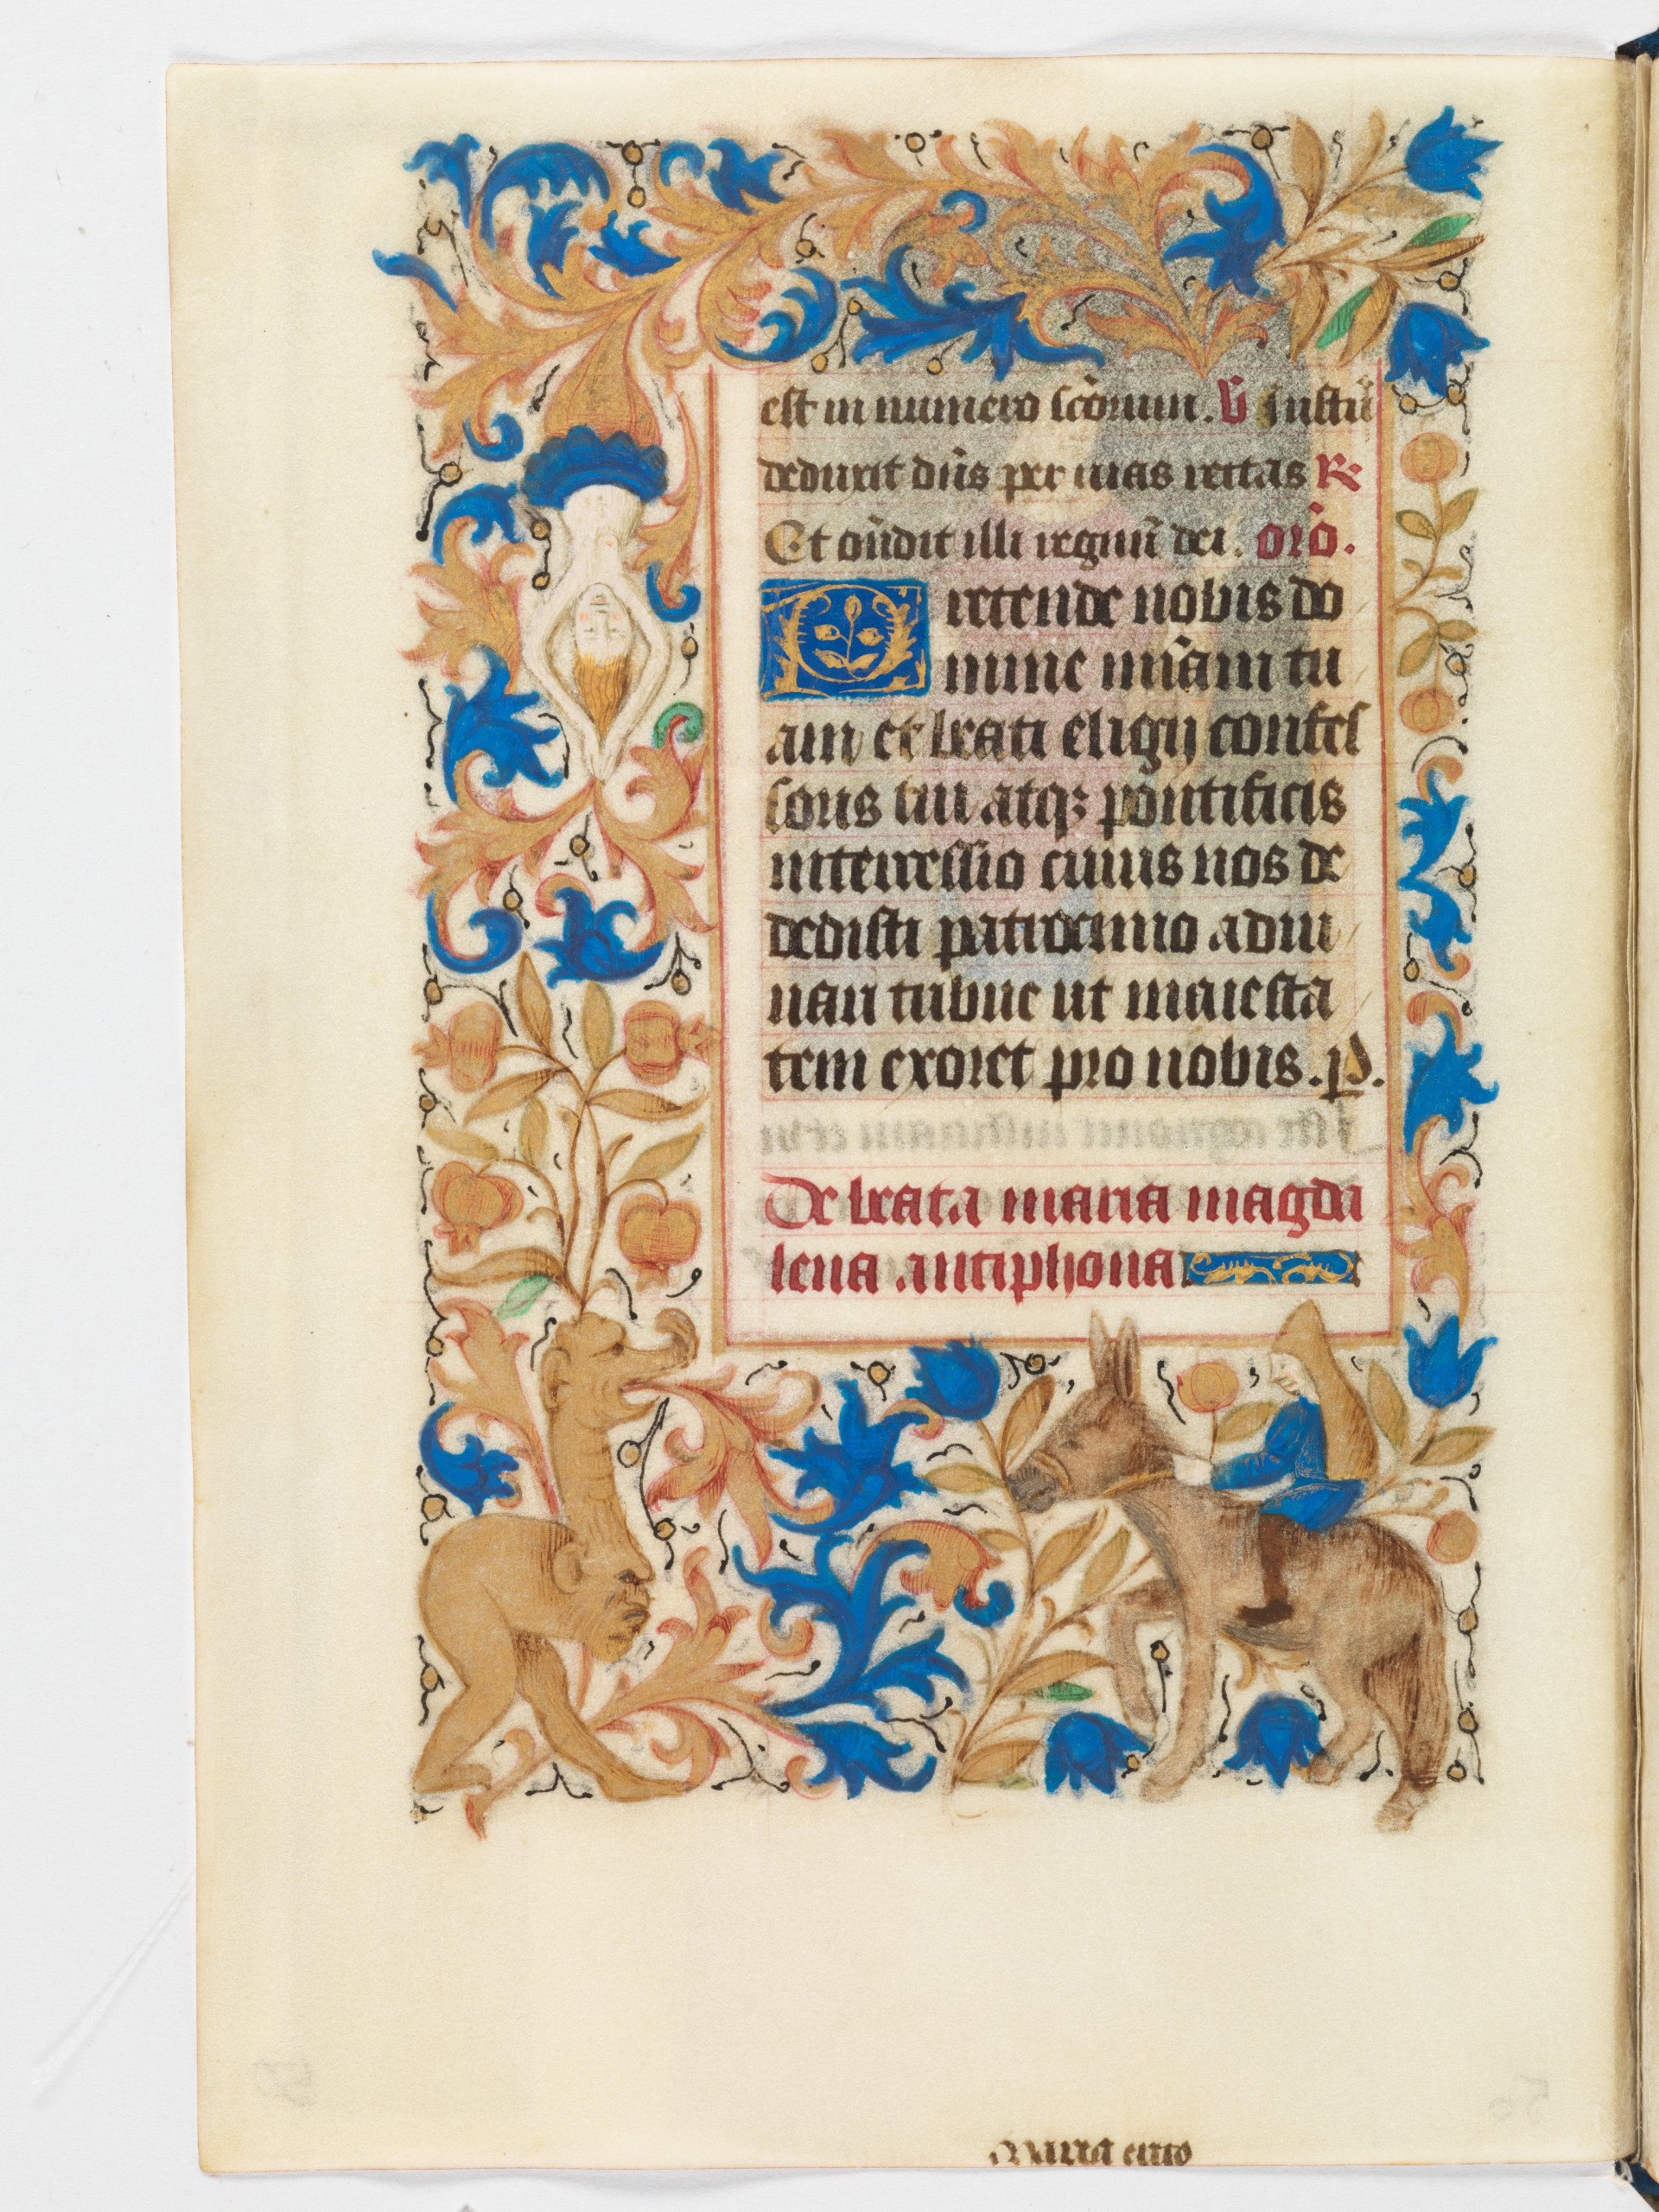 est in numero sc̄orum. V̄ Justū
deduxit dn̄s per uias rectas R̄
Et on̄dit illi regnū dei. or̄o.
Pretende nobis do
mine mīam tu
am et beati eligij confes
soris tui atqꝫ pontificis
intercessio cuius nos de
dedisti patrocinio adiu
uari tribue ut maiesta
tem exoret pro nobis. p̄.
De beata maria magda
lena antiphona
Maria